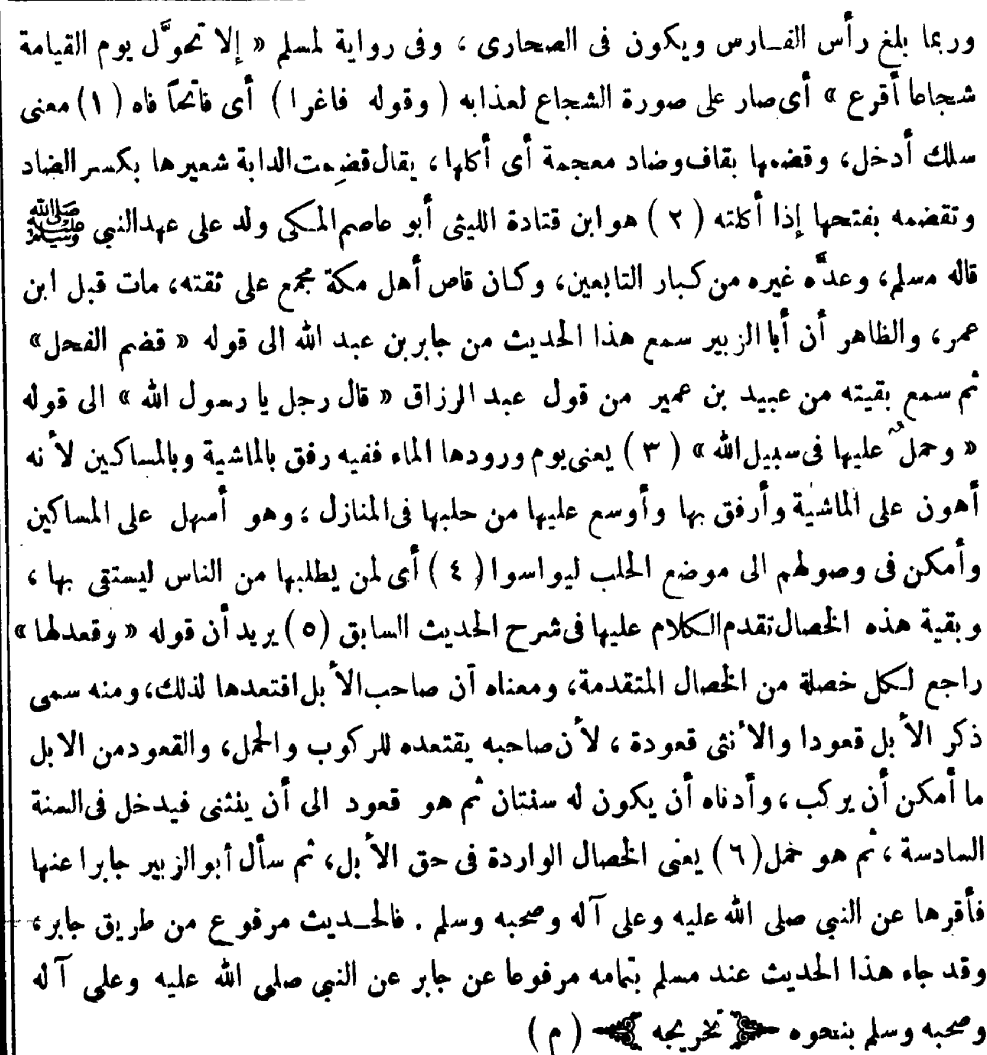 وربما بلغ رأس الفارس ويكون فى الصحارى ، وفى رواية لمسلم « إلا تحوَّل يوم القيامة
شجاعا أقرع » أى صار على صورة الشجاع لعذابه ( وقوله فاغرا ) أى فاتحاً فاه (١) معنى
سلك أدخل، وقضمها بقاف وضاد معجمة أى أكلها ، يقال قضِمت الدابة شعيرها بكسر الضاد
وتقضمه بفتحها إذا أكلته (٢) هو ابن قتادة الليثى أبو عاصم المكى ولد على عهد النبى ﷺ
قاله مسلم، وعدَّه غيره من كبار التابعين، وكان قاص أهل مكة مجمع على ثقته، مات قبل ابن
عمر، والظاهر أن أبا الزبير سمع هذا الحديث من جابر بن عبد الله الى قوله « قضم الفحل»
ثم سمع بقيته من عبيد بن عمير من قول عبد الرزاق « قال رجل يا رسول الله » الى قوله
« وحمل عليها فى سبيل الله » (٣) يعنى يوم ورودها الماء ففيه رفق بالماشية وبالمساكين لأنه
أهون على الماشية وأرفق بها وأوسع عليها من حلبها فى المنازل ، وهو أسهل على المساكين
وأمكن فى وصولهم الى موضع الحلب ليواسوا (٤) أى لمن يطلبها من الناس ليستقى بها ،
وبقية هذه الخصال تقدم الكلام عليها فى شرح الحديث السابق (٥) يريد أن قوله « وقعدلها »
راجع لكل خصلة من الخصال المتقدمة، ومعناه أن صاحب الأبل افتعدها لذلك، ومنه سمى
ذكر الأبل قعودا والأنثى قعودة ، لأن صاحبه يقتعده للركوب والحمل، والقعود من الابل
ما أمكن أن يركب ، وأدناه أن يكون له سنتان ثم هو قعود الى أن يثنى فيدخل فى السنة
السادسة ، ثم هو خمل (٦) يعنى الخصال الواردة فى حق الأبل، ثم سأل أبو الزبير جابرا عنها
فأقرها عن النبى صلى الله عليه وعلى آله وصحبه وسلم . فالحديث مرفوع من طريق جابر ،
وقد جاء هذا الحديث عند مسلم بتمامه مرفوعا عن جابر عن النبى صلى الله عليه وعلى آله
وصحبه وسلم بنحوه تخريجه ( م )